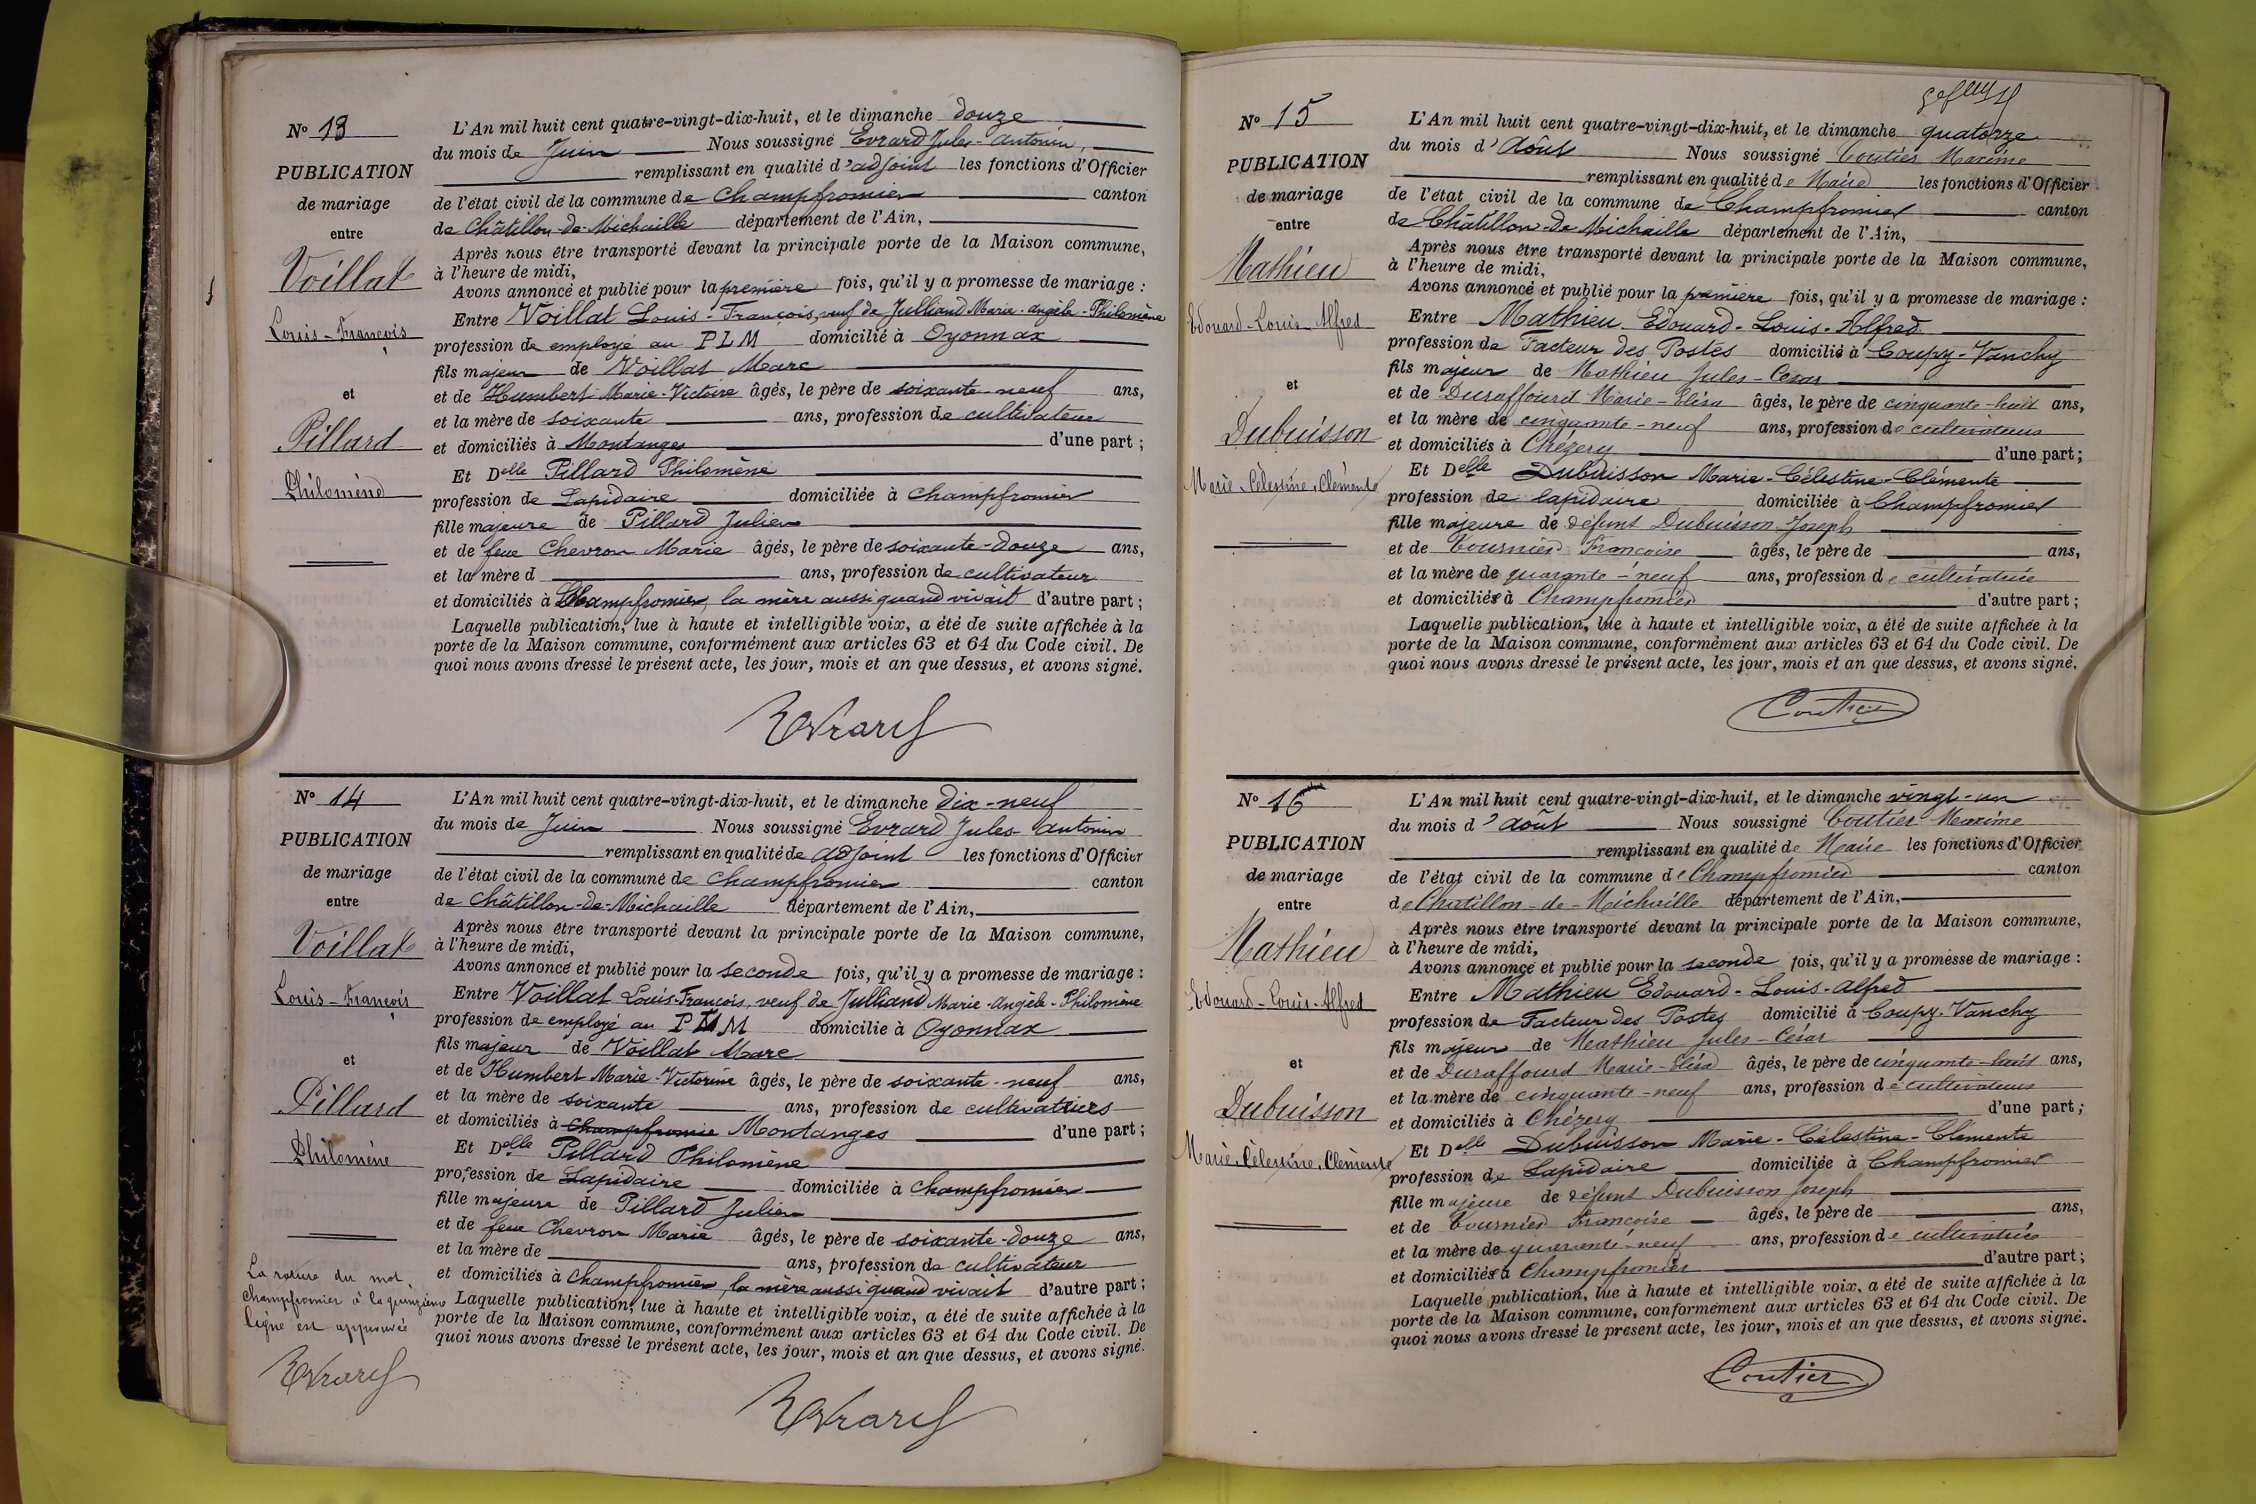 N° 13
PUBLICATION
de mariage
entre
Voillat
Louis-François
et
Pillard
Philomène
L'An mil huit cent quatre-vingt-dix-huit, et le dimanche douze
du mois de Juin Nous soussigné Evrard Jules-Antonin,
remplissant en qualité d'adjoint les fonctions d'Officier
de l'état civil de la commune de Champfromier canton
de Châtillon-de-Michaille département de l'Ain,
Après nous être transporté devant la principale porte de la Maison commune,
à l'heure de midi,
Avons annoncé et publié pour la première fois, qu'il y a promesse de mariage :
Entre Voillat Louis-François, veuf de Julliand Marie-Angèle-Philomène
profession de employé au PLM domicilié à Oyonnax
fils majeur de Voillat Marc
et de Humbert Marie-Victoire âgés, le père de soixante-neuf ans,
et la mère de soixante ans, profession de cultivateur
et domiciliés à Montanges d'une part ;
Et Delle Pillard Philomène
profession de Lapidaire domiciliée à Champfromier
fille majeure de Pillard Julien
et de feue Chevron Marie âgés, le père de soixante-douze ans,
et la mère d ans, profession de cultivateur
et domiciliés à Champfromier, la mère aussi quand vivait d'autre part ;
Laquelle publication, lue à haute et intelligible voix, a été de suite affichée à la
porte de la Maison commune, conformément aux articles 63 et 64 du Code civil. De
quoi nous avons dressé le présent acte, les jour, mois et an que dessus, et avons signé.
Evrard
N° 14
PUBLICATION
de mariage
entre
Voillat
Louis-François
et
Pillard
Philomène
La rature du mot
Champfromier à la quinzième
ligne est approuvée
Evrard
L'An mil huit cent quatre-vingt-dix-huit, et le dimanche dix-neuf
du mois de Juin Nous soussigné Evrard Jules-Antonin
remplissant en qualité de adjoint les fonctions d'Officier
de l'état civil de la commune de Champfromier canton
de Châtillon-de-Michaille département de l'Ain,
Après nous être transporté devant la principale porte de la Maison commune,
à l'heure de midi,
Avons annoncé et publié pour la seconde fois, qu'il y a promesse de mariage :
Entre Voillat Louis-François, veuf de Julliand Marie-Angèle-Philomène
profession de employé au PLM domicilié à Oyonnax
fils majeur de Voillat Marc
et de Humbert Marie-Victorine âgés, le père de soixante-neuf ans,
et la mère de soixante ans, profession de cultivateurs
et domiciliés à Champfromie Montanges d'une part ;
Et Delle Pillard Philomène
profession de Lapidaire domiciliée à Champfromier
fille majeure de Pillard Julien
et de feue Chevron Marie âgés, le père de soixante-douze ans,
et la mère de ans, profession de cultivateur
et domiciliés à Champfromier, la mère aussi quand vivait d'autre part ;
Laquelle publication, lue à haute et intelligible voix, a été de suite affichée à la
porte de la Maison commune, conformément aux articles 63 et 64 du Code civil. De
quoi nous avons dressé le présent acte, les jour, mois et an que dessus, et avons signé.
Evrard
N° 15
PUBLICATION
de mariage
entre
Mathieu
Edouard-Louis-Alfred
et
Dubuisson
Marie-Célestine-Clémente
L'An mil huit cent quatre-vingt-dix-huit, et le dimanche quatorze
du mois d'Août Nous soussigné Coutier Maxime
remplissant en qualité de Maire les fonctions d'Officier
de l'état civil de la commune de Champfromier canton
de Châtillon-de-Michaille département de l'Ain,
Après nous être transporté devant la principale porte de la Maison commune,
à l'heure de midi,
Avons annoncé et publié pour la première fois, qu'il y a promesse de mariage :
Entre Mathieu Edouard-Louis-Alfred
profession de Facteur des Postes domicilié à Coupy-Vanchy
fils majeur de Mathieu Jules-César
et de Duraffourd Marie-Eliza âgés, le père de cinquante-huit ans,
et la mère de cinquante-neuf ans, profession de cultivateurs
et domiciliés à Chézery d'une part ;
Et Delle Dubuisson Marie-Célestine-Clémente
profession de lapidaire domiciliée à Champfromier
fille majeure de défunt Dubuisson Joseph
et de Tournier Françoise âgés, le père de ans,
et la mère de quarante-neuf ans, profession de cultivatrice
et domiciliés à Champfromier d'autre part ;
Laquelle publication, lue à haute et intelligible voix, a été de suite affichée à la
porte de la Maison commune, conformément aux articles 63 et 64 du Code civil. De
quoi nous avons dressé le présent acte, les jour, mois et an que dessus, et avons signé.
Coutier
N° 16
PUBLICATION
de mariage
entre
Mathieu
Edouard-Louis-Alfred
et
Dubuisson
Marie-Célestine-Clémente
L'An mil huit cent quatre-vingt-dix-huit, et le dimanche vingt-un
du mois d'août Nous soussigné Coutier Maxime
remplissant en qualité de Maire les fonctions d'Officier
de l'état civil de la commune de Champfromier canton
de Chatillon-de-Michaille département de l'Ain,
Après nous être transporté devant la principale porte de la Maison commune,
à l'heure de midi,
Avons annoncé et publié pour la seconde fois, qu'il y a promesse de mariage :
Entre Mathieu Edouard-Louis-Alfred
profession de Facteur des Postes domicilié à Coupy-Vanchy
fils majeur de Mathieu Jules-César
et de Duraffourd Marie-Eliza âgés, le père de cinquante-huit ans,
et la mère de cinquante-neuf ans, profession de cultivateurs
et domiciliés à Chézery d'une part ;
Et Delle Dubuisson Marie-Célestine-Clémente
profession de Lapidaire domiciliée à Champfromier
fille majeure de défunt Dubuisson Joseph
et de Tournier Françoise âgés, le père de ans,
et la mère de quarante-neuf ans, profession de cultivatrice
et domiciliés à Champfromier d'autre part ;
Laquelle publication, lue à haute et intelligible voix, a été de suite affichée à la
porte de la Maison commune, conformément aux articles 63 et 64 du Code civil. De
quoi nous avons dressé le présent acte, les jour, mois et an que dessus, et avons signé.
Coutier